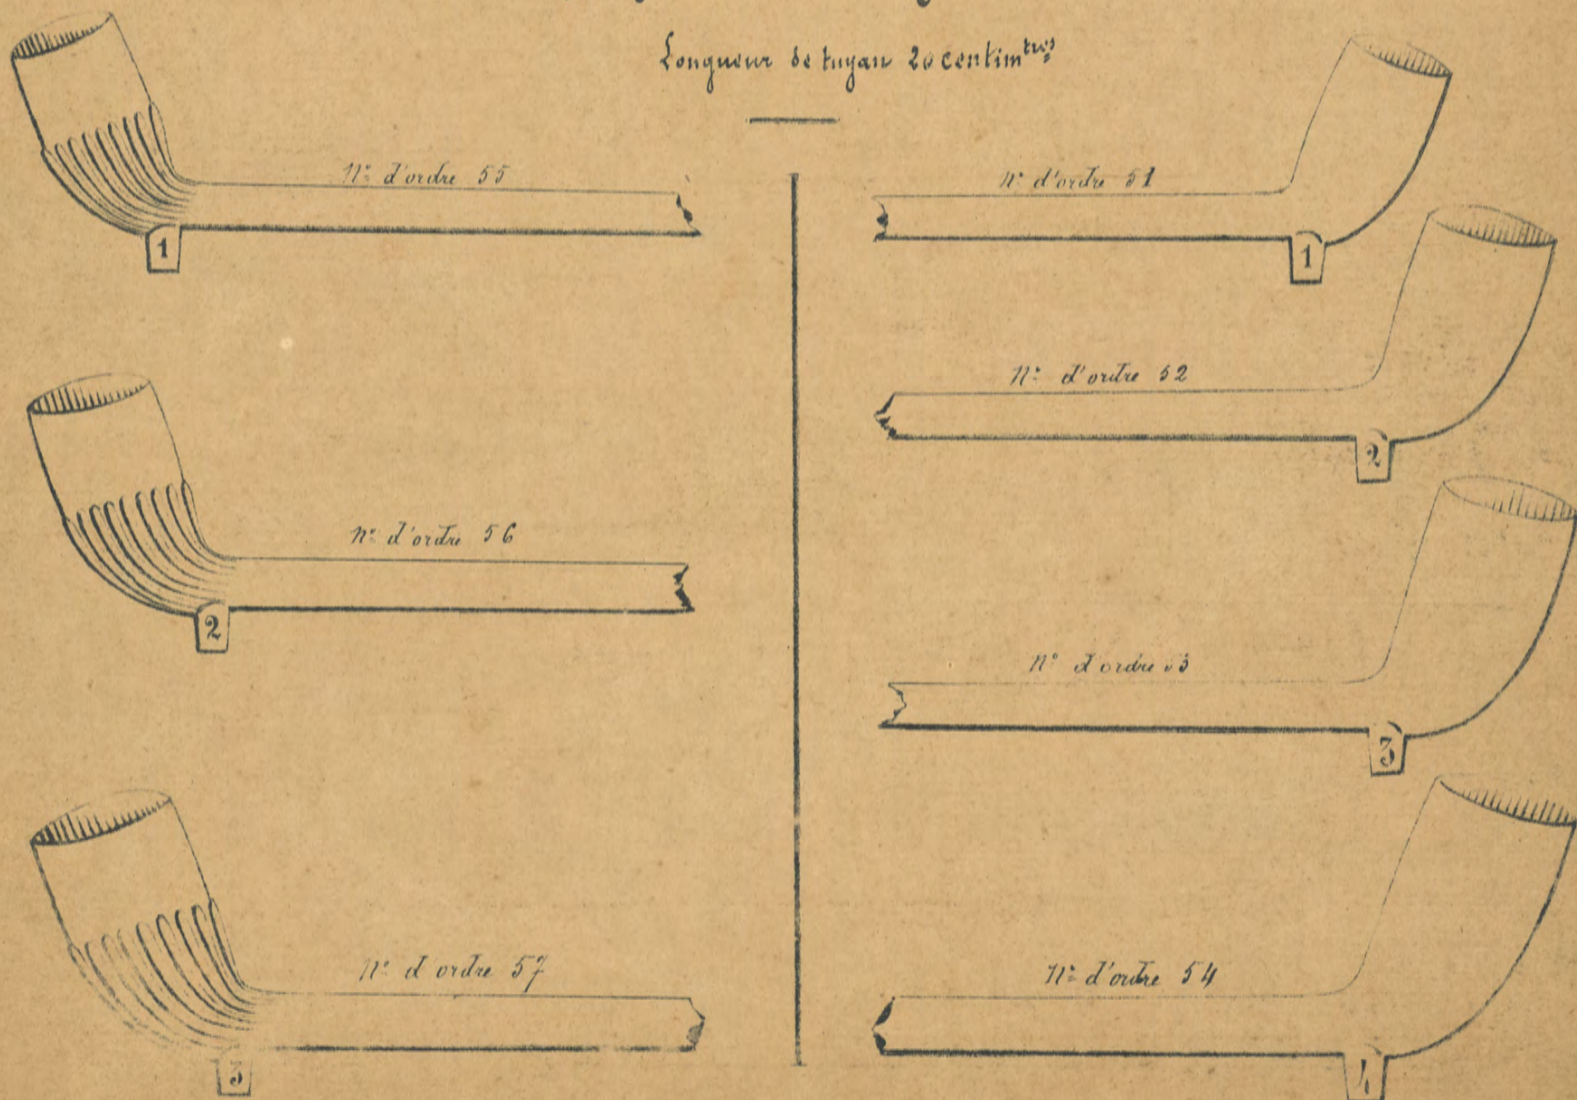 Longueur de tuyau 20 centim^tres
N° d'ordre 55
1
N° d'ordre 56
2
N° d'ordre 57
3
N° d'ordre 51
1
N° d'ordre 52
2
N° d'ordre
3
N° d'ordre 54
4